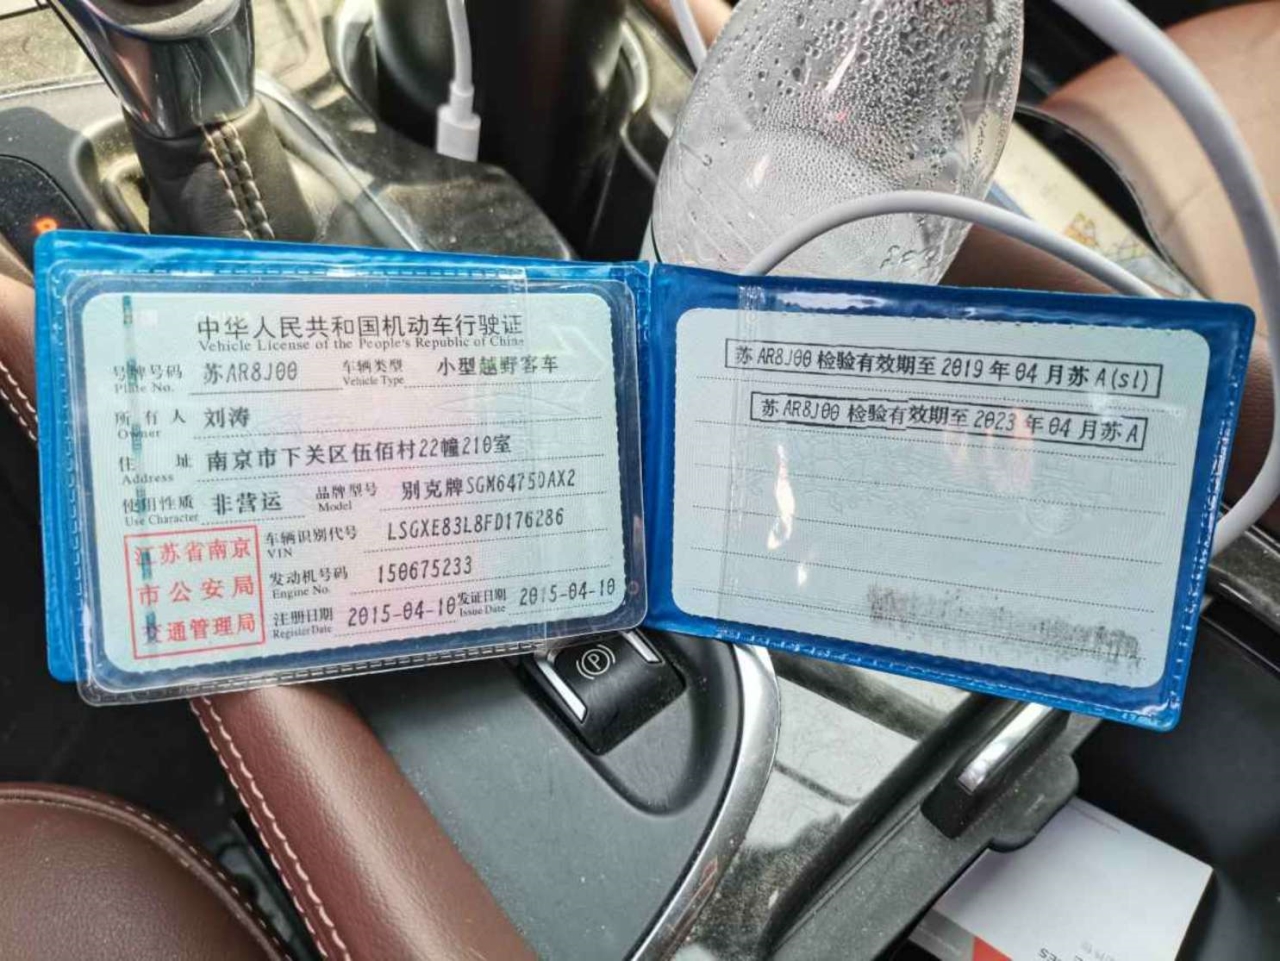 中华人民共和国机动车行驶证
Vehicle License of the People's Republic of China
号牌号码 苏AR8J00 车辆类型 小型越野客车
Plate No. Vehicle Type
所有人 刘涛
Owner
住址 南京市下关区伍佰村22幢210室
Address
使用性质 非营运 品牌型号 别克牌SGM6475DAX2
Use Character Model
江苏省南京
市公安局
交通管理局
车辆识别代号 LSGXE83L8FD176286
VIN
发动机号码 150675233
Engine No.
注册日期 2015-04-10 发证日期 2015-04-10
Register Date Issue Date
苏AR8J00检验有效期至2019年04月苏A(sl)
苏AR8J00检验有效期至2023年04月苏A
P